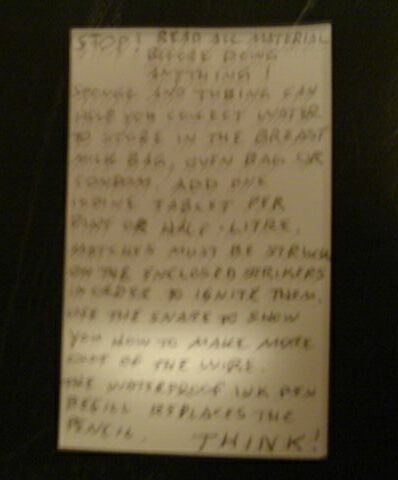 STOP! READ ALL MATERIAL
BEFORE DOING
ANYTHING!
SPONGE AND TUBING CAN
HELP YOU COLLECT WATER
TO STORE IN THE BREAST
MILK BAG, OVEN BAG OR
CONDOM. ADD ONE
IODINE TABLET PER
PINT OR HALF-LITRE.
MATCHES MUST BE STRUCK
ON THE ENCLOSED STRIKERS
IN ORDER TO IGNITE THEM.
USE THE SNARE TO SHOW
YOU HOW TO MAKE MORE
OUT OF THE WIRE.
THE WATERPROOF INK PEN
REFILL REPLACES THE
PENCIL. THINK!